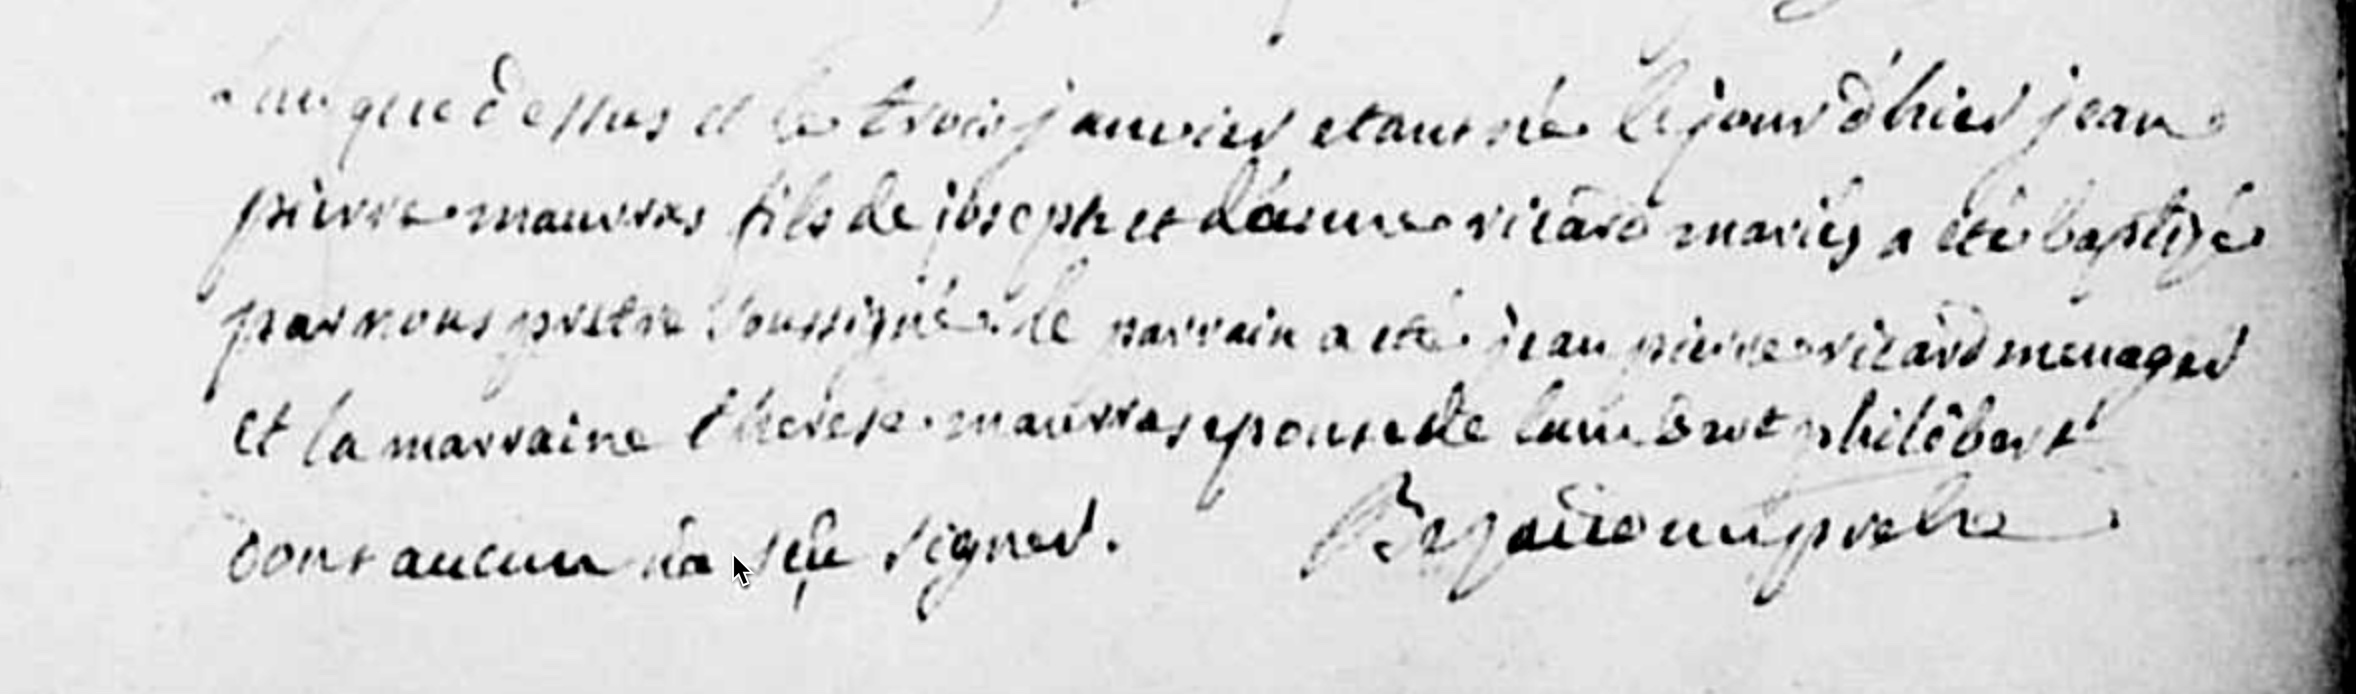 L'an que dessus et le trois janvier etant né le jour d'hier jean
pierre maurras fils de joseph et d'anne ricard mariés a été baptizé
par nous pretre soussigné. le parrain a été jean pierre ricard menager
et la marraine therese maurras epouse de philibert
dont aucun n'a sçu signer. pretre